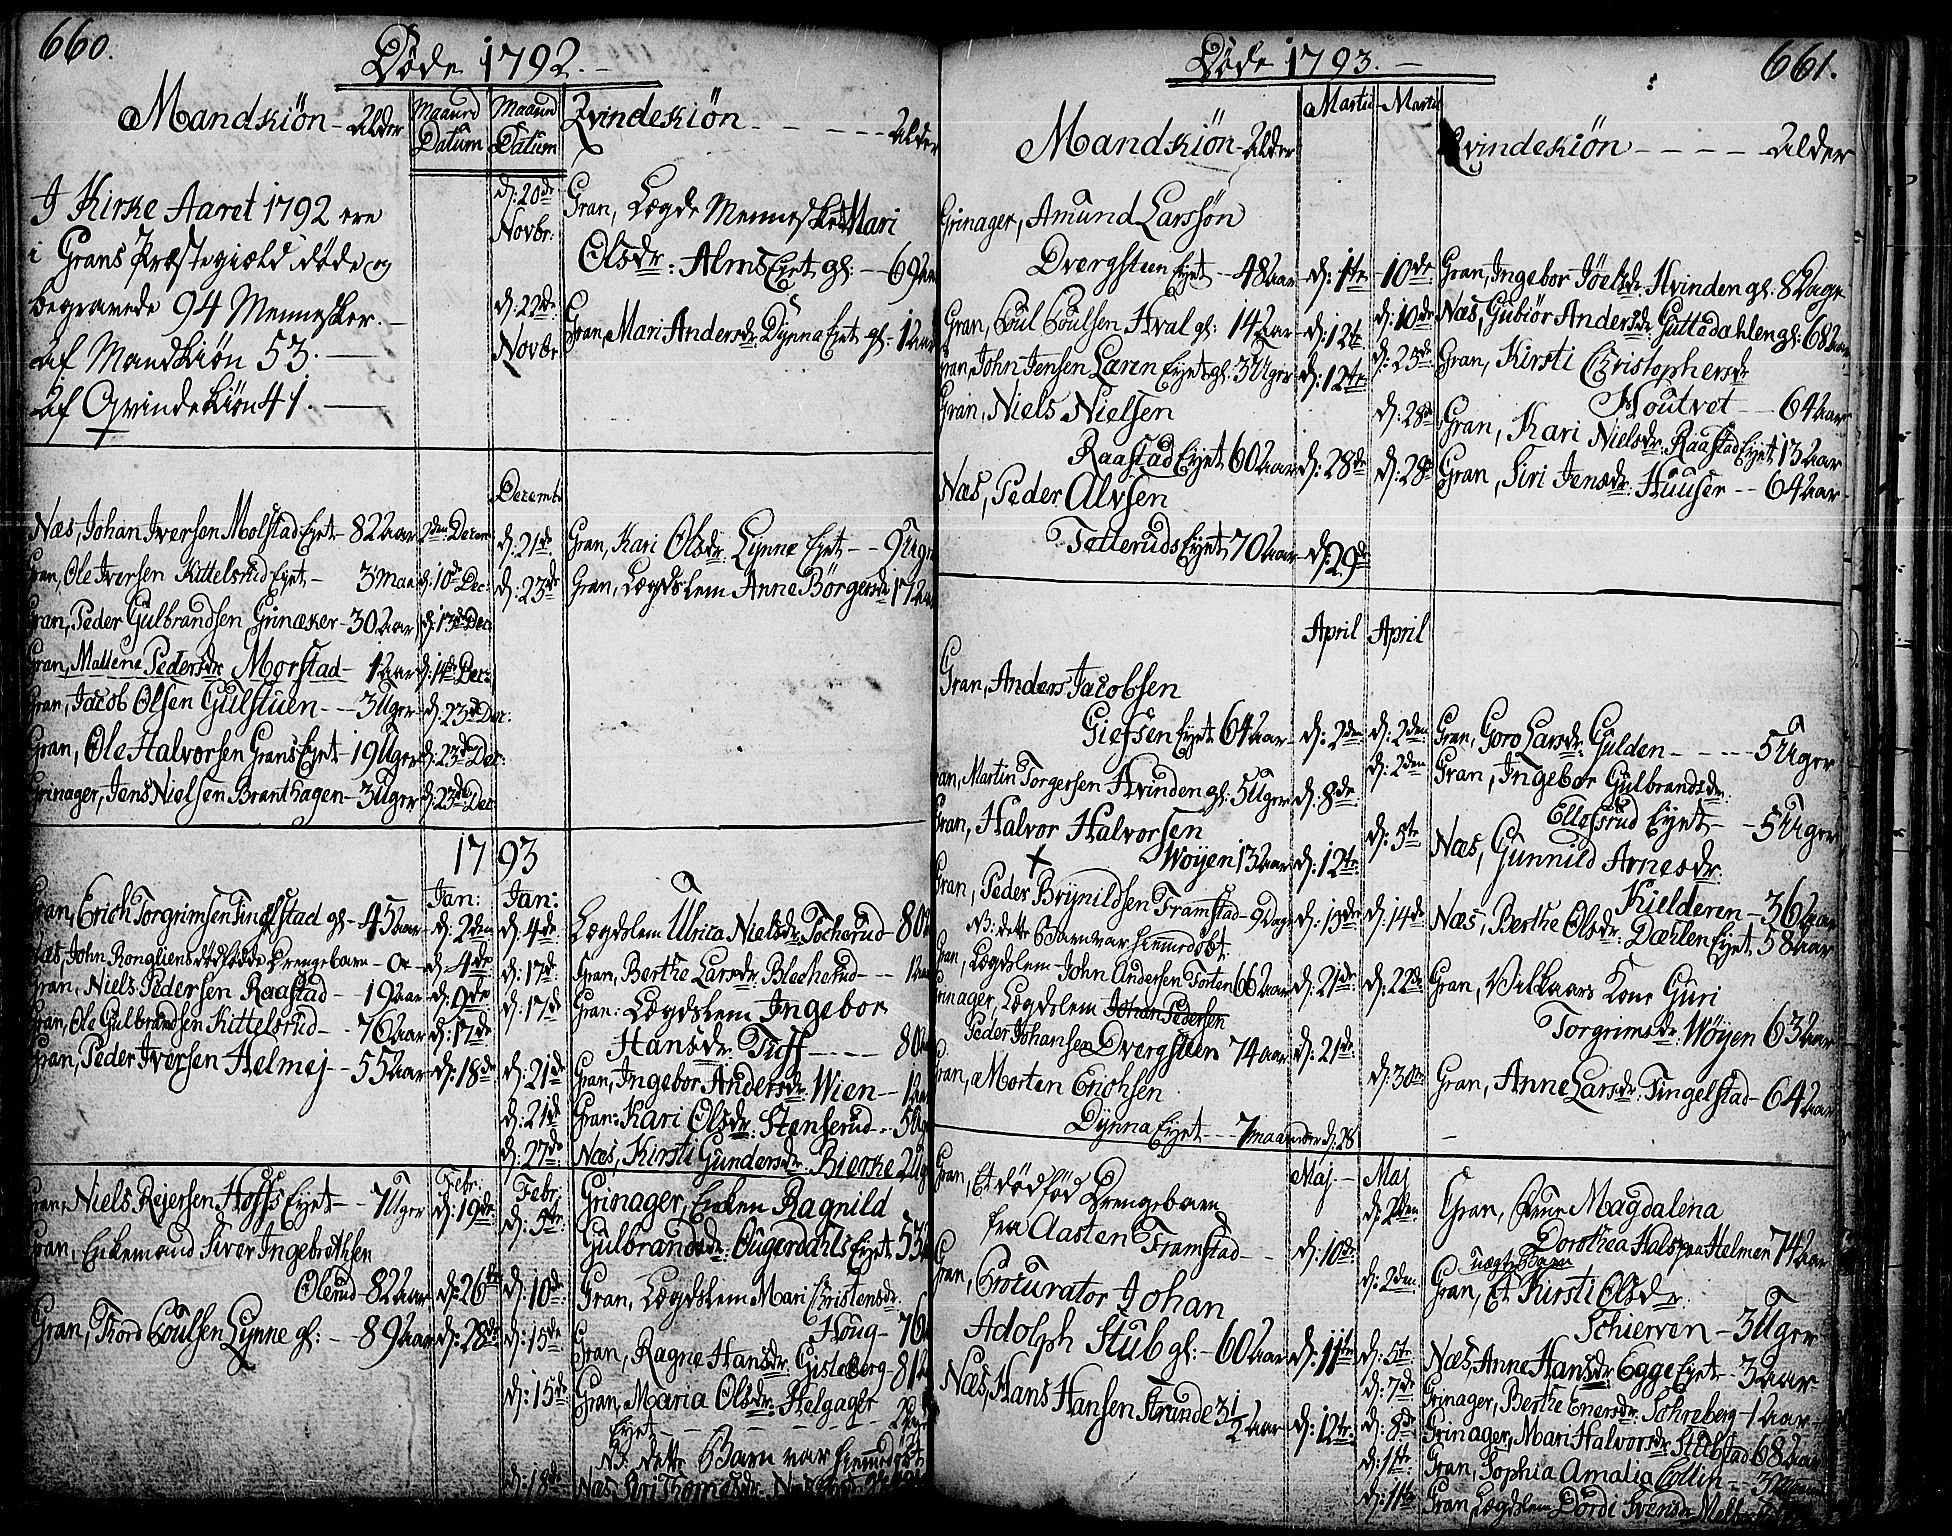 660.
Døde 1792.
Mandkiøn - Alder
Maaned Datum
Maaned Datum
Qvindekiøn - - - - - Alder
I Kirke Aaret 1792 ere
i Grans Præstegiæld døde og
begravede 94 Mennesker.
Af Mandkiøn 53.
Af Qvindekiøn 41.
d: 20de Novbr: Gran, Lægde Mennesket Mari
Olsdr: Alms Eyet gl: - 69 Aar
d: 22de Novbr Gran, Mari Andersdr Dynna Eyet gl - 1 Aar
Decemb
Næs, Johan Iversen Molstad Eyet - 82 Aar 2den Decem
Gran, Ole Iversen Kittelsrud Eyet - 3 maa d: 10de Dec:
Gran, Peder Gulbrandsen Grinaker - 30 Aar d: 13de Dec
Gran, Mallene Pedersdr Morstad - 1 Aar d: 14de Dec:
Gran, Jacob Olsen Gulstuen - - 3 Uger d: 23de Dec:
Gran, Ole Halvorsen Grans Eyet - 19 Uger d: 23de Dec:
Grinager, Jens Nielsen Branthagen - 3 Uger d: 23de Dec
d: 21de Gran, Kari Olsdr Lynne Eyet - - 9 Uger
d: 23de Gran, Lægdslem Anne Børgersdr 17 Aar
1793
Jan: Jan:
Gran, Erich Torgrimsen Tingelstad gl - 45 Aar d: 2den
Næs, John Rongliens dødfødde Drengebarn - 0 - d: 4de
Gran, Niels Pedersen Raastad - - 19 Aar d: 9de
Gran, Ole Gulbrandsen Kittelsrud - - 76 Aar d: 17de
Gran, Peder Iversen Helmej - - 55 Aar d: 18de
d: 4de Lægdslem Ulrica Nielsdr Tocherud - 80
d: 17de Gran, Berthe Larsdr Blecherud - - - 1 Aar
d: 17de Gran: Lægdslem Ingebor
Hansdr Tuff - - - - 80
d: 21de Gran, Ingebor Andersdr Wien - 1 Aar
d: 21de Gran: Kari Olsdr: Stenserud - - 50
d: 27de Næs, Kirsti Gundersdr Bierke 2 Ug
Febr. Febr.
Gran, Niels Rejersen Hoffs Eyet - 7 Uger d: 19de
Gran, Enkemand Siver Ingebrethsen
Ølerud - 82 Aar d: 26de
Gran, Tord Poulsen Lynne gl: - 89 Aar d: 28de
d: 5te Grinager, Enken Ragnild
Gulbrandsdr: Ougerdahls Eyet 53
d: 10de Gran, Lægdslem Mari Christensdr
Houg - 76
d: 15de Gran, Ragne Hansdr: Gisleberg - 81
d: 15de Gran, Maria Olsdr: Helgager
Eyet - - - - -
NB: dette Barn var hiemedøbt
d: 18de Næs, Siri Thomesdr
661.
Døde 1793.
Mandkiøn - Alder
Martii Martii
Qvindekiøn - - - - Alder
Grinager, Amund Larssøn
Dvergsten Eyet - 48 Aar - d: 1te
Gran, Poul Poulsen Hval gl: 14 Aar - d: 12te
Gran, John Jensen Laren Eyet gl. 3 Uger d: 12te
Gran, Niels Nielsen
Raastad Eyet 60 Aar d: 28de
Næs, Peder Alvsen
Tetteruds Eyet 70 Aar - d: 29de
10de Gran, Ingebor Jøelsdr: Hvinden gl. 8 Dage
d: 10de Næs, Gubiør Andersdr Guttadahlen gl: 68 Aar
d: 25de Gran, Kirsti Christophersdr
Houtvet - - 64 Aar
d: 28de Gran, Kari Nielsdr. Raastad Eyet 13 Aar
d: 29de Gran, Siri Jensdr: Huuser - - 64 Aar
April April
Gran, Anders Jacobsen
Giefsen Eyet 64 Aar - d: 2den
Gran, Martin Torgersen Hvinden gl: 5 Uger d: 8de
Gran, Halvor Halvorsen
Wøyen 13 Aar d: 12te
Gran, Peder Brynildsen Framstad - 9 Dage d: 13de
NB: dette Barn var hiemedøbt.
Gran, Lægdslem John Andersen Torten 66 Aar d: 21de
Grinager, Lægdslem Johan Pedersen
Peder Johansen Dvergsten 74 Aar d: 21de
Gran, Morten Erichsen
Dynna Eyet - - 7 maaneder d: 28
d: 2den Gran, Goro Larsdr: Gulden - - - - - 5 Uger
d: 2den Gran, Ingebor Gulbrandsdr:
Ellefsrud Eyet - - 5 Uger
d: 5te Næs, Gunnild Arnesdr:
Kielderen - 36 Aar
d: 14de Næs, Berthe Olsdr: Dæhlen Eyet 58 Aar
d: 22de Gran, Vilkaars Kone Guri
Torgrimsdr: Wøyen 63 Aar
d: 30te Gran, Anne Larsdr: Tingelstad - 64 Aar
Maj. Maj
Gran, Et dødfød Drengebarn
fra Aasten Framstad - - d: 10de
Gran, Procurator Johan
Adolph Stub gl: - 60 Aar d: 11te
Næs, Hans Hansen Strande 3 1/2 Aar d: 12te
d: 2den Gran, Magdalena
Dorothea Hals paa Helmen 74 Aar
uægte Barn
d: 2den Gran, Et Kirsti Olsdr:
Schierven - 3 Uger
d: 5te Næs, Anne Hansdr: Egge Eyet - 3 Aar
d: 7de Grinager, Berthe Enersdr: Sohreberg - 1 Aar
d: 8de Grinager, Mari Halvorsdr Stubstad 68 Aar
d: 11te Gran, Sophia Amalia Collin - -
d: 11te Gran, Lægdslem Dordi Svensdr